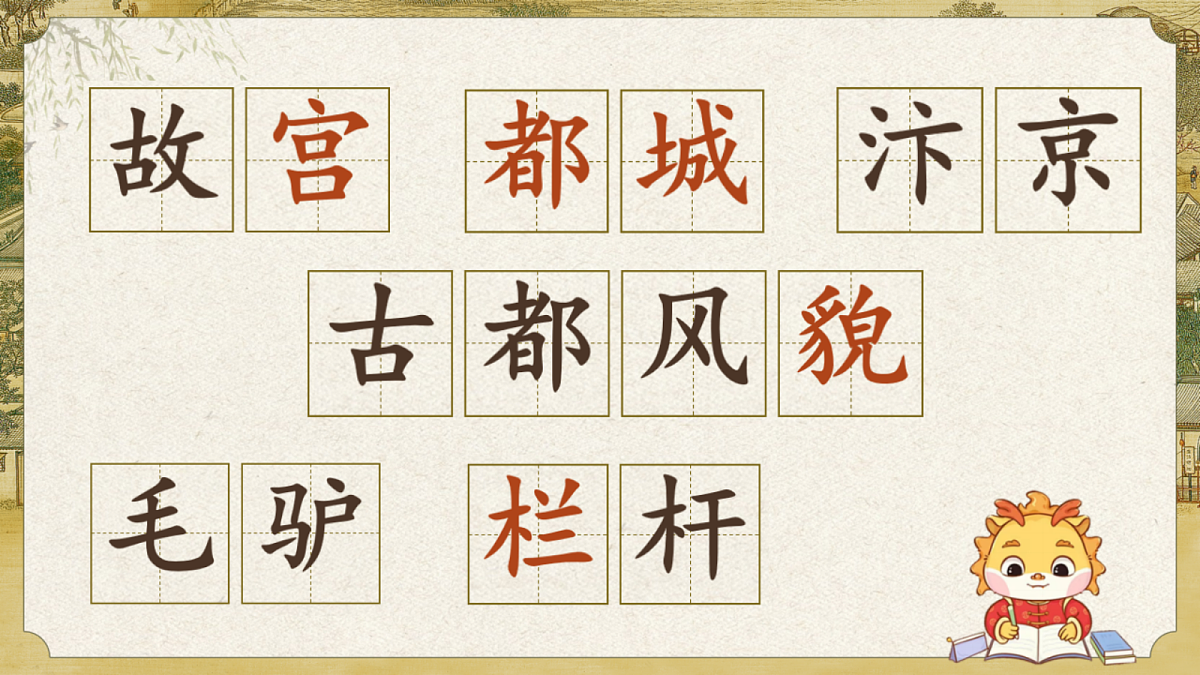 故宫 都城 汴京
古都风貌
毛驴 栏杆